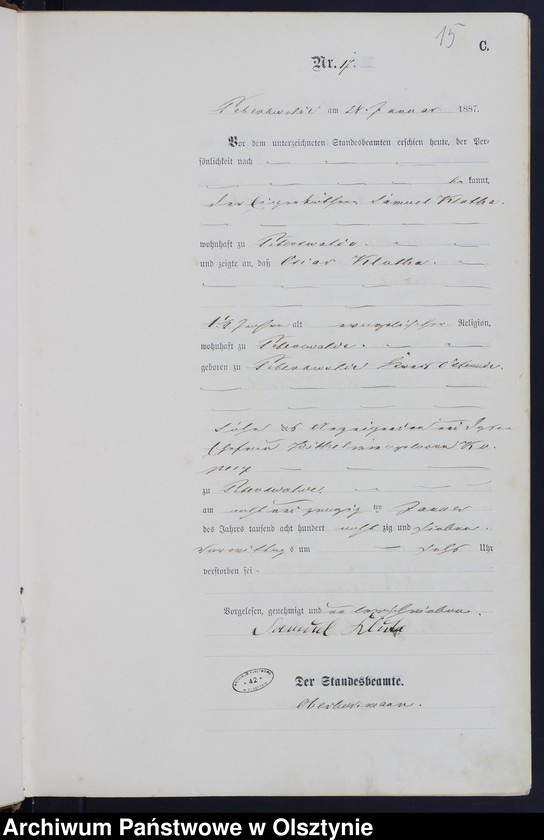 15
C.
Nr. 17.
Peterswalde am 28. Januar 1887.
Vor dem unterzeichneten Standesbeamten erschien heute, der Per-
sönlichkeit nach
be kannt,
der Eigenkäthner Samuel Klatha.
wohnhaft zu Peterswalde.
und zeigte an, daß Klatha.
Jahre alt evangelischer Religion,
wohnhaft zu Peterswalde.
geboren zu Peterswalde Kreis Osterode.
Sohn des Anzeigenden und dessen
Ehefrau Wilhelmine geborene
zu Peterswalde,
am acht und zwanzig ten Januar
des Jahrs tausend acht hundert acht zig und sieben.
Vormittags um sechs Uhr
verstorben sei.
Vorgelesen, genehmigt und unterschrieben.
Samuel
42
Der Standesbeamte.
Archiwum Państwowe w Olsztynie